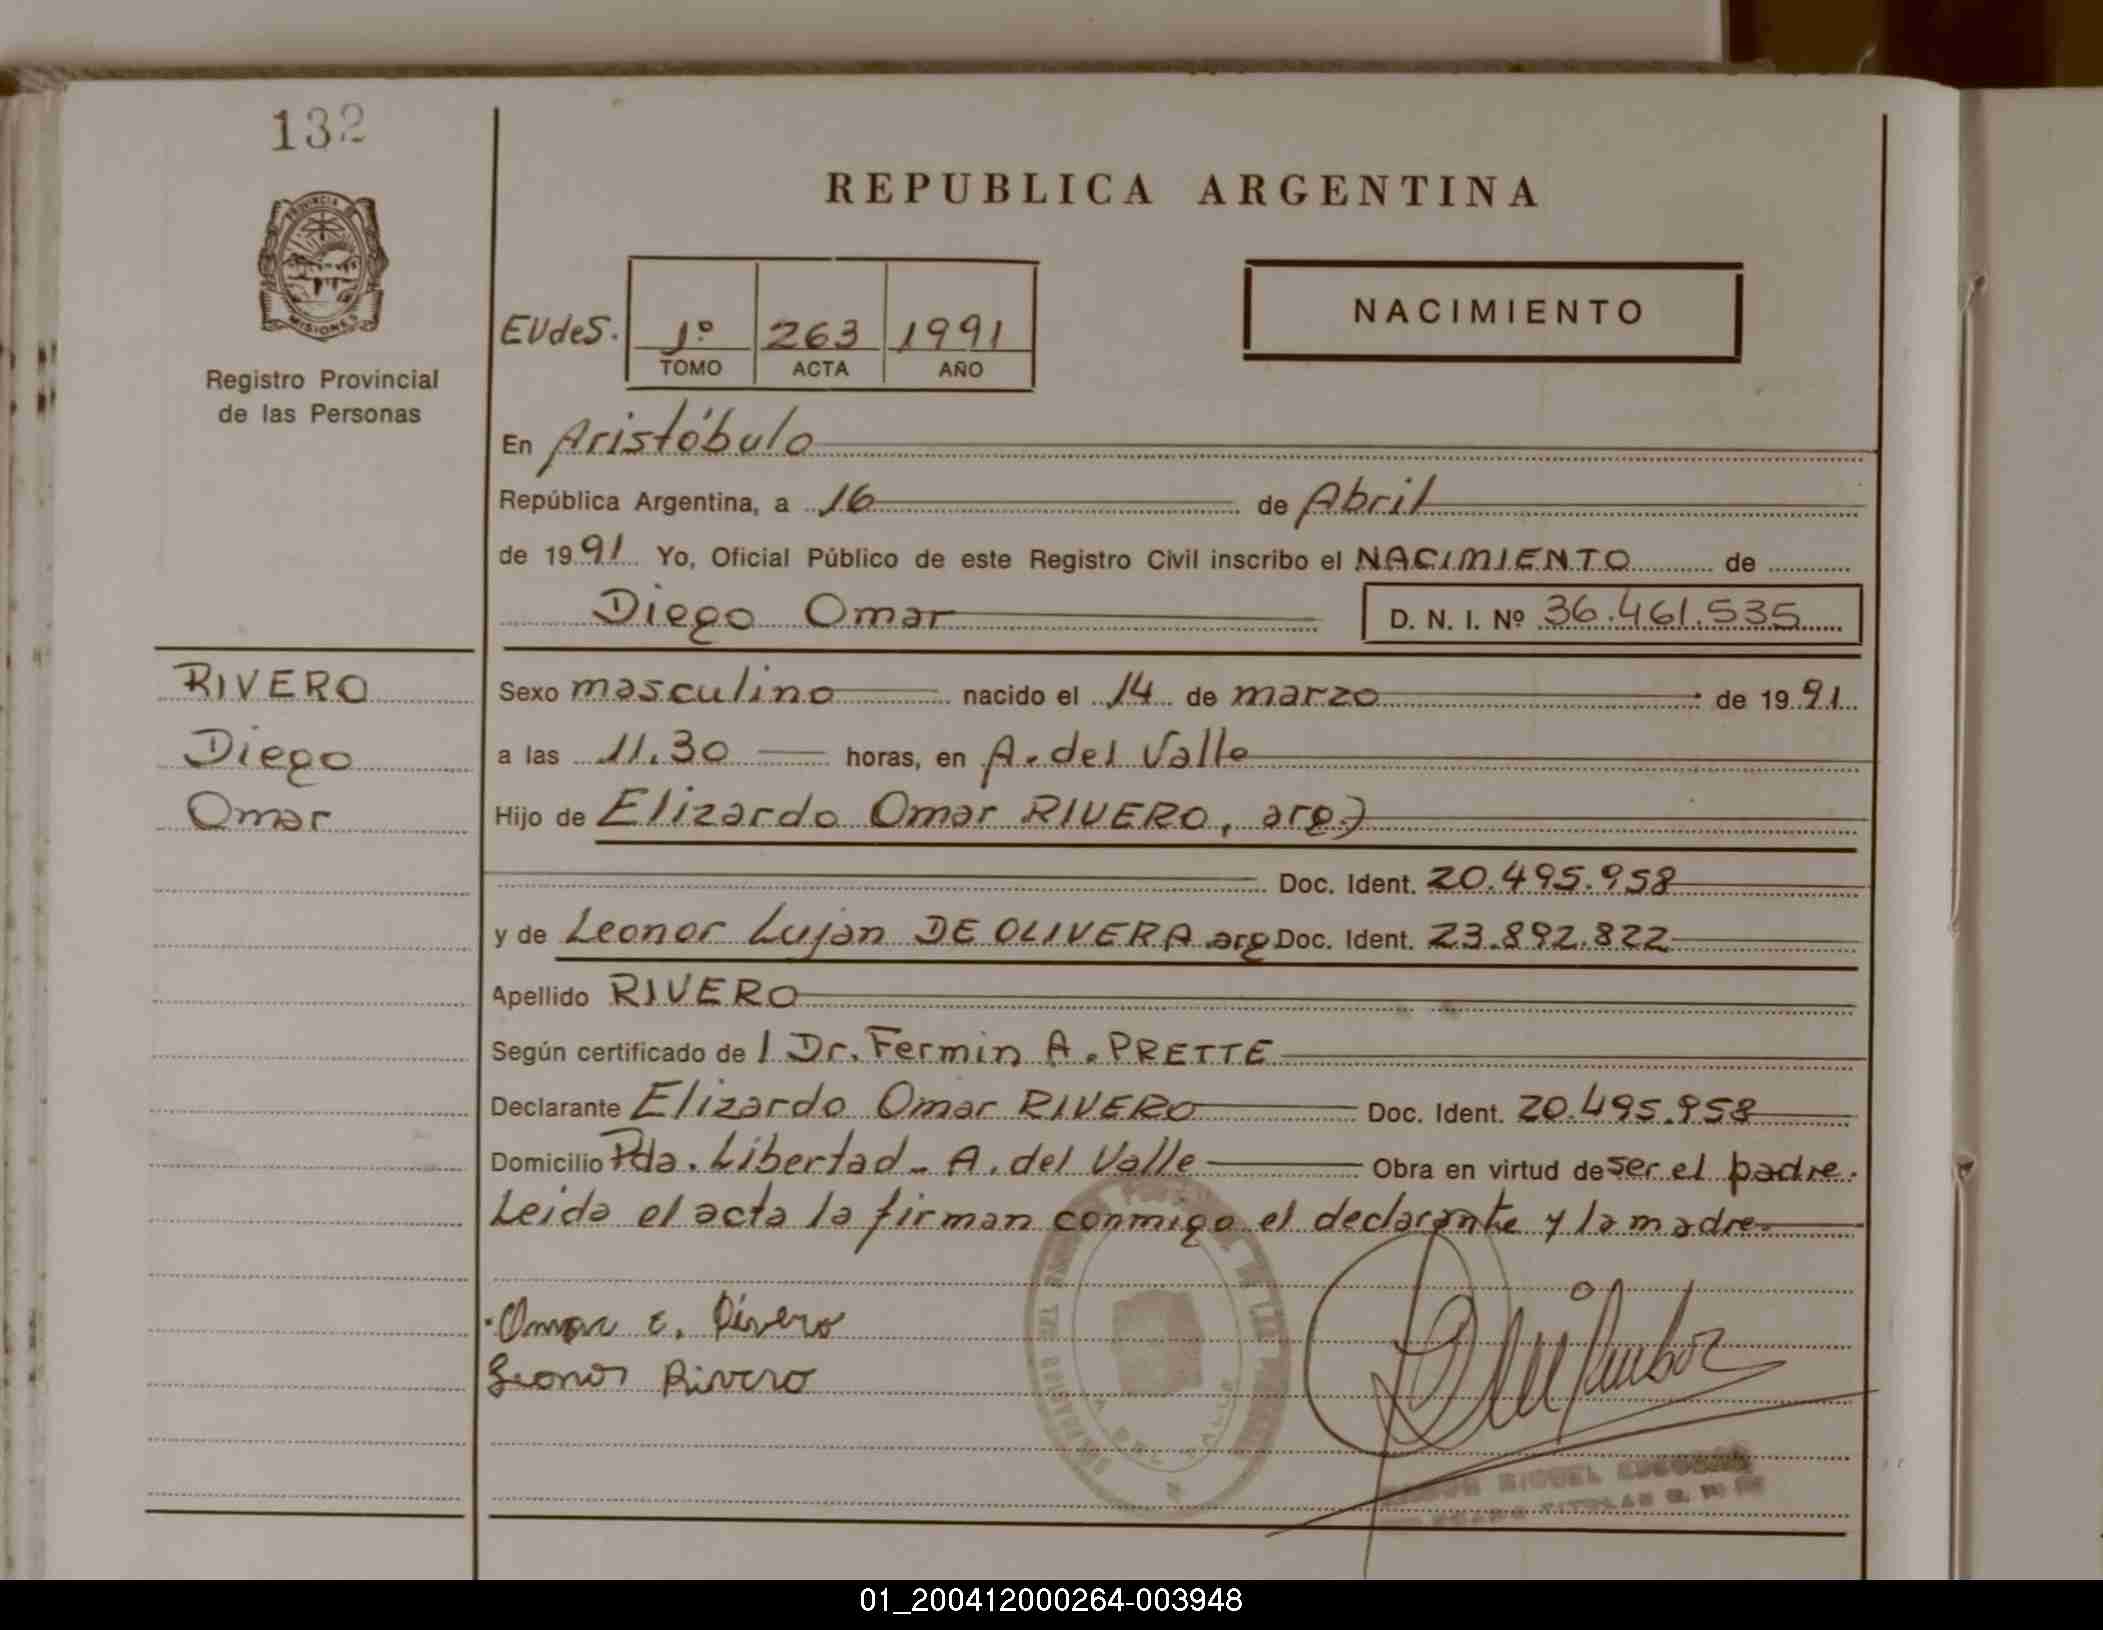 132
REPUBLICA ARGENTINA
PROVINCIA DE
MISIONES
Registro Provincial
de las Personas
NACIMIENTO
EVdeS. 1º 263 1991
TOMO ACTA AÑO
En Aristóbulo
República Argentina, a 16 de Abril
de 1991 Yo, Oficial Público de este Registro Civil inscribo el NACIMIENTO de
Diego Omar D. N. I. Nº 36.461.535
RIVERO
Diego
Omar
Sexo masculino nacido el 14 de marzo de 1991
a las 11.30 horas, en A. del Valle
Hijo de Elizardo Omar RIVERO, arg.)
Doc. Ident. 20.495.958
y de Leonor Lujan DE OLIVERA arg Doc. Ident. 23.892.822
Apellido RIVERO
Según certificado de l Dr. Fermin A. PRETTE
Declarante Elizardo Omar RIVERO Doc. Ident. 20.495.958
Domicilio Pda. Libertad - A. del Valle Obra en virtud de ser el padre.
Leida el acta la firman conmigo el declarante y la madre
Omar E. Rivero
Leonor Rivero
MIGUEL
TITULAR
01_200412000264-003948